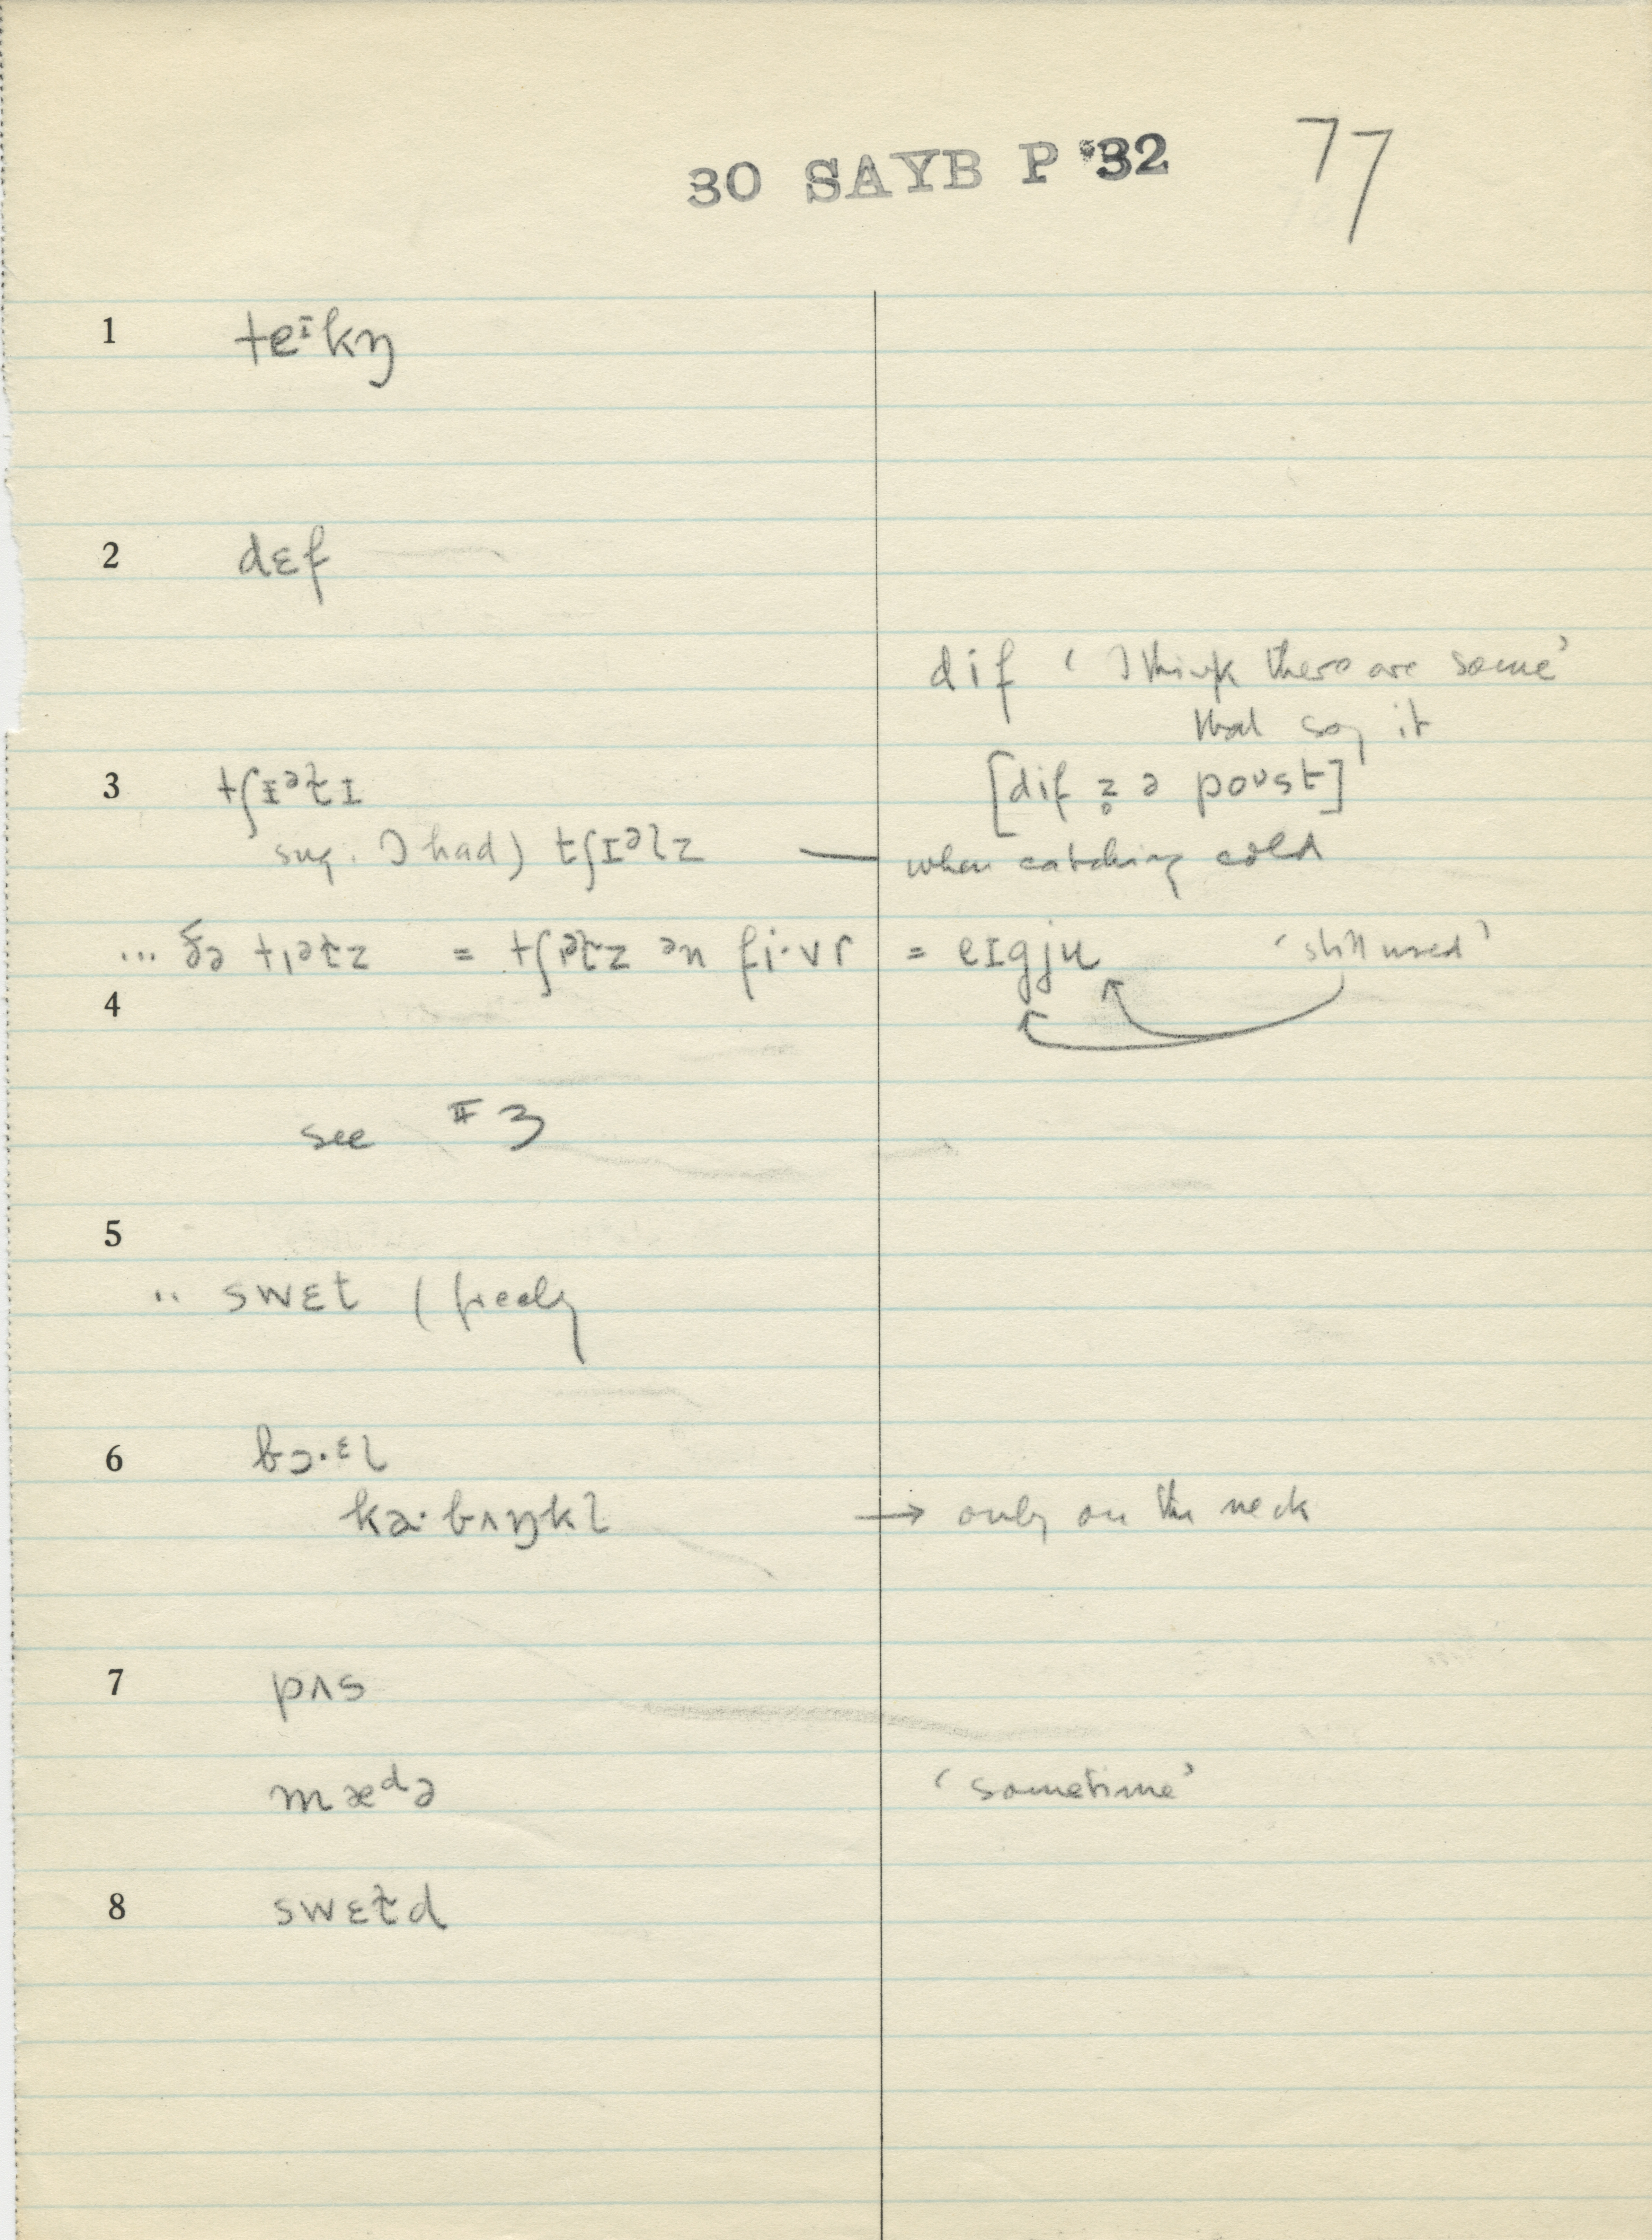 30 SAYB P '32 77
1 teᶦkŋ
2 dɛf
dif ' I think there are some'
that say it
3 tʃɪᵊɫɪ [dif əz̥ ə poᶷst]
sug. I had) tʃɪᵊlz — when catching cold
... ðə tʃɪᵊɫz = tʃɪᵊɫz ən fi·vr = eɪgju 'still used'
4
see # 3
5
.. swɛt (freely
6 bɔ·ᵋl
ka·bʌŋkl → only on the neck
7 pʌs
mæᵈə 'sometime'
8 swɛɫd